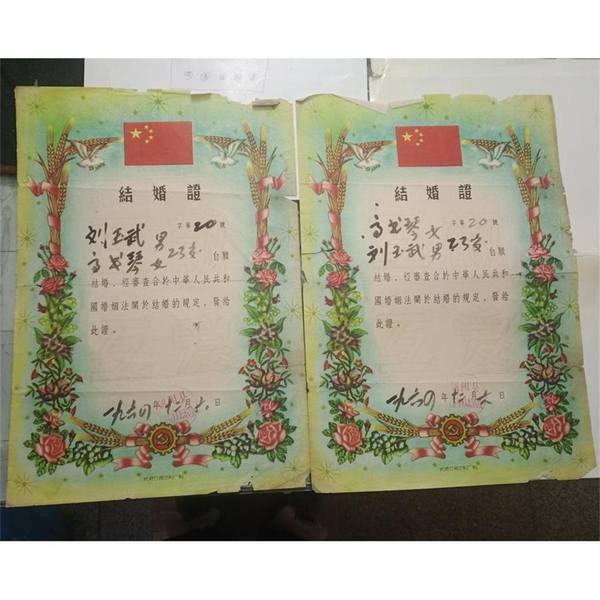 結婚證
字第20號
刘玉武 男
高 琴 女 23岁 自願
結婚，經審查合於中華人民共和
國婚姻法關於結婚的規定，發給
此證。
一九六〇年十二月六日
結婚證
字第20號
高 琴 女
刘玉武 男 23岁 自願
結婚，經審查合於中華人民共和
國婚姻法關於結婚的規定，發給
此證。
一九六〇年十二月六日